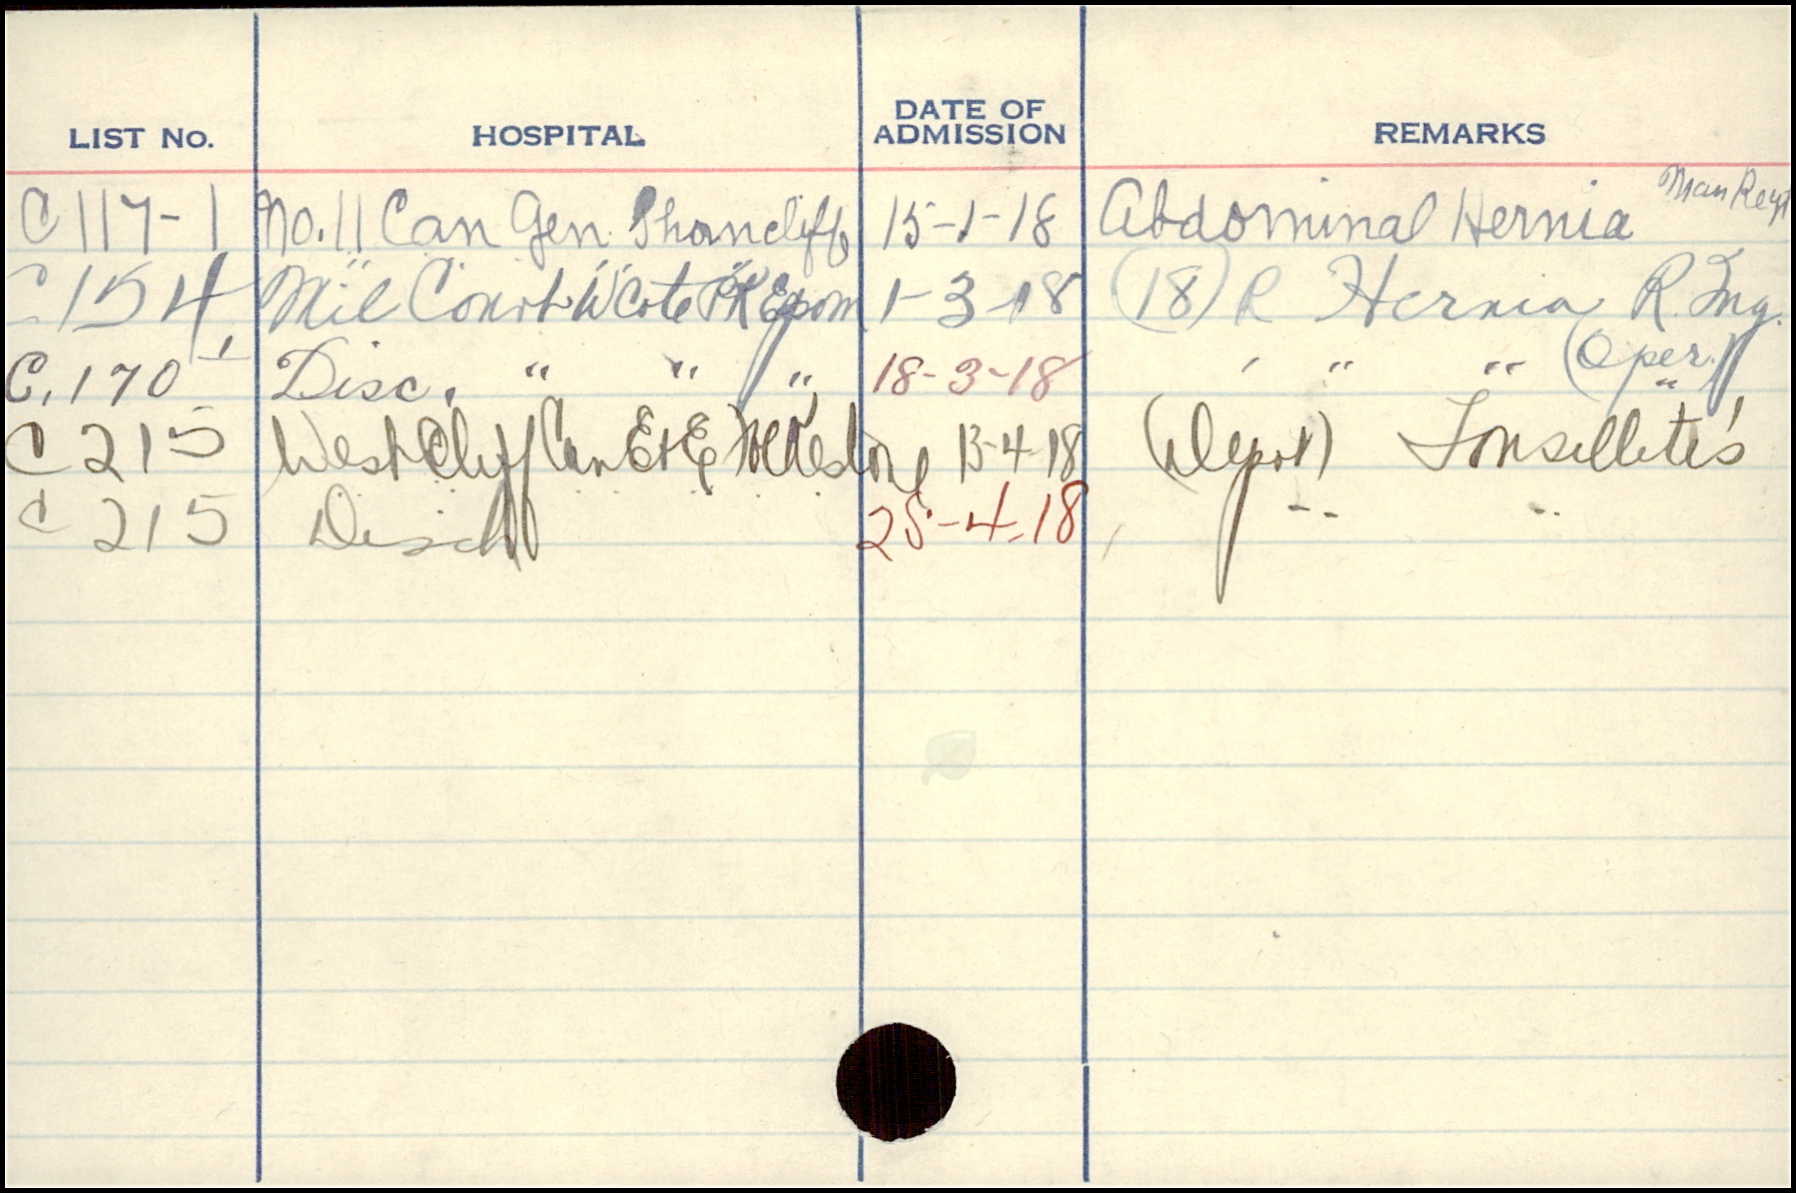 LIST No. HOSPITAL DATE OF ADMISSION REMARKS
C 117-1 No. 11 Can Gen Shorncliffe 15-1-18 Abdominal Hernia Man Regt
C 154 Mil Con Epsom 1-3-18 (18) R Hernia R. Ing.
C. 170-1 Disc. " " " 18-3-18 " " (Oper.) "
C 215 West Cliff Can E+E Folkestone 13-4-18 (Depot) Tonsillitis
C 215 Disch 25-4-18 " "